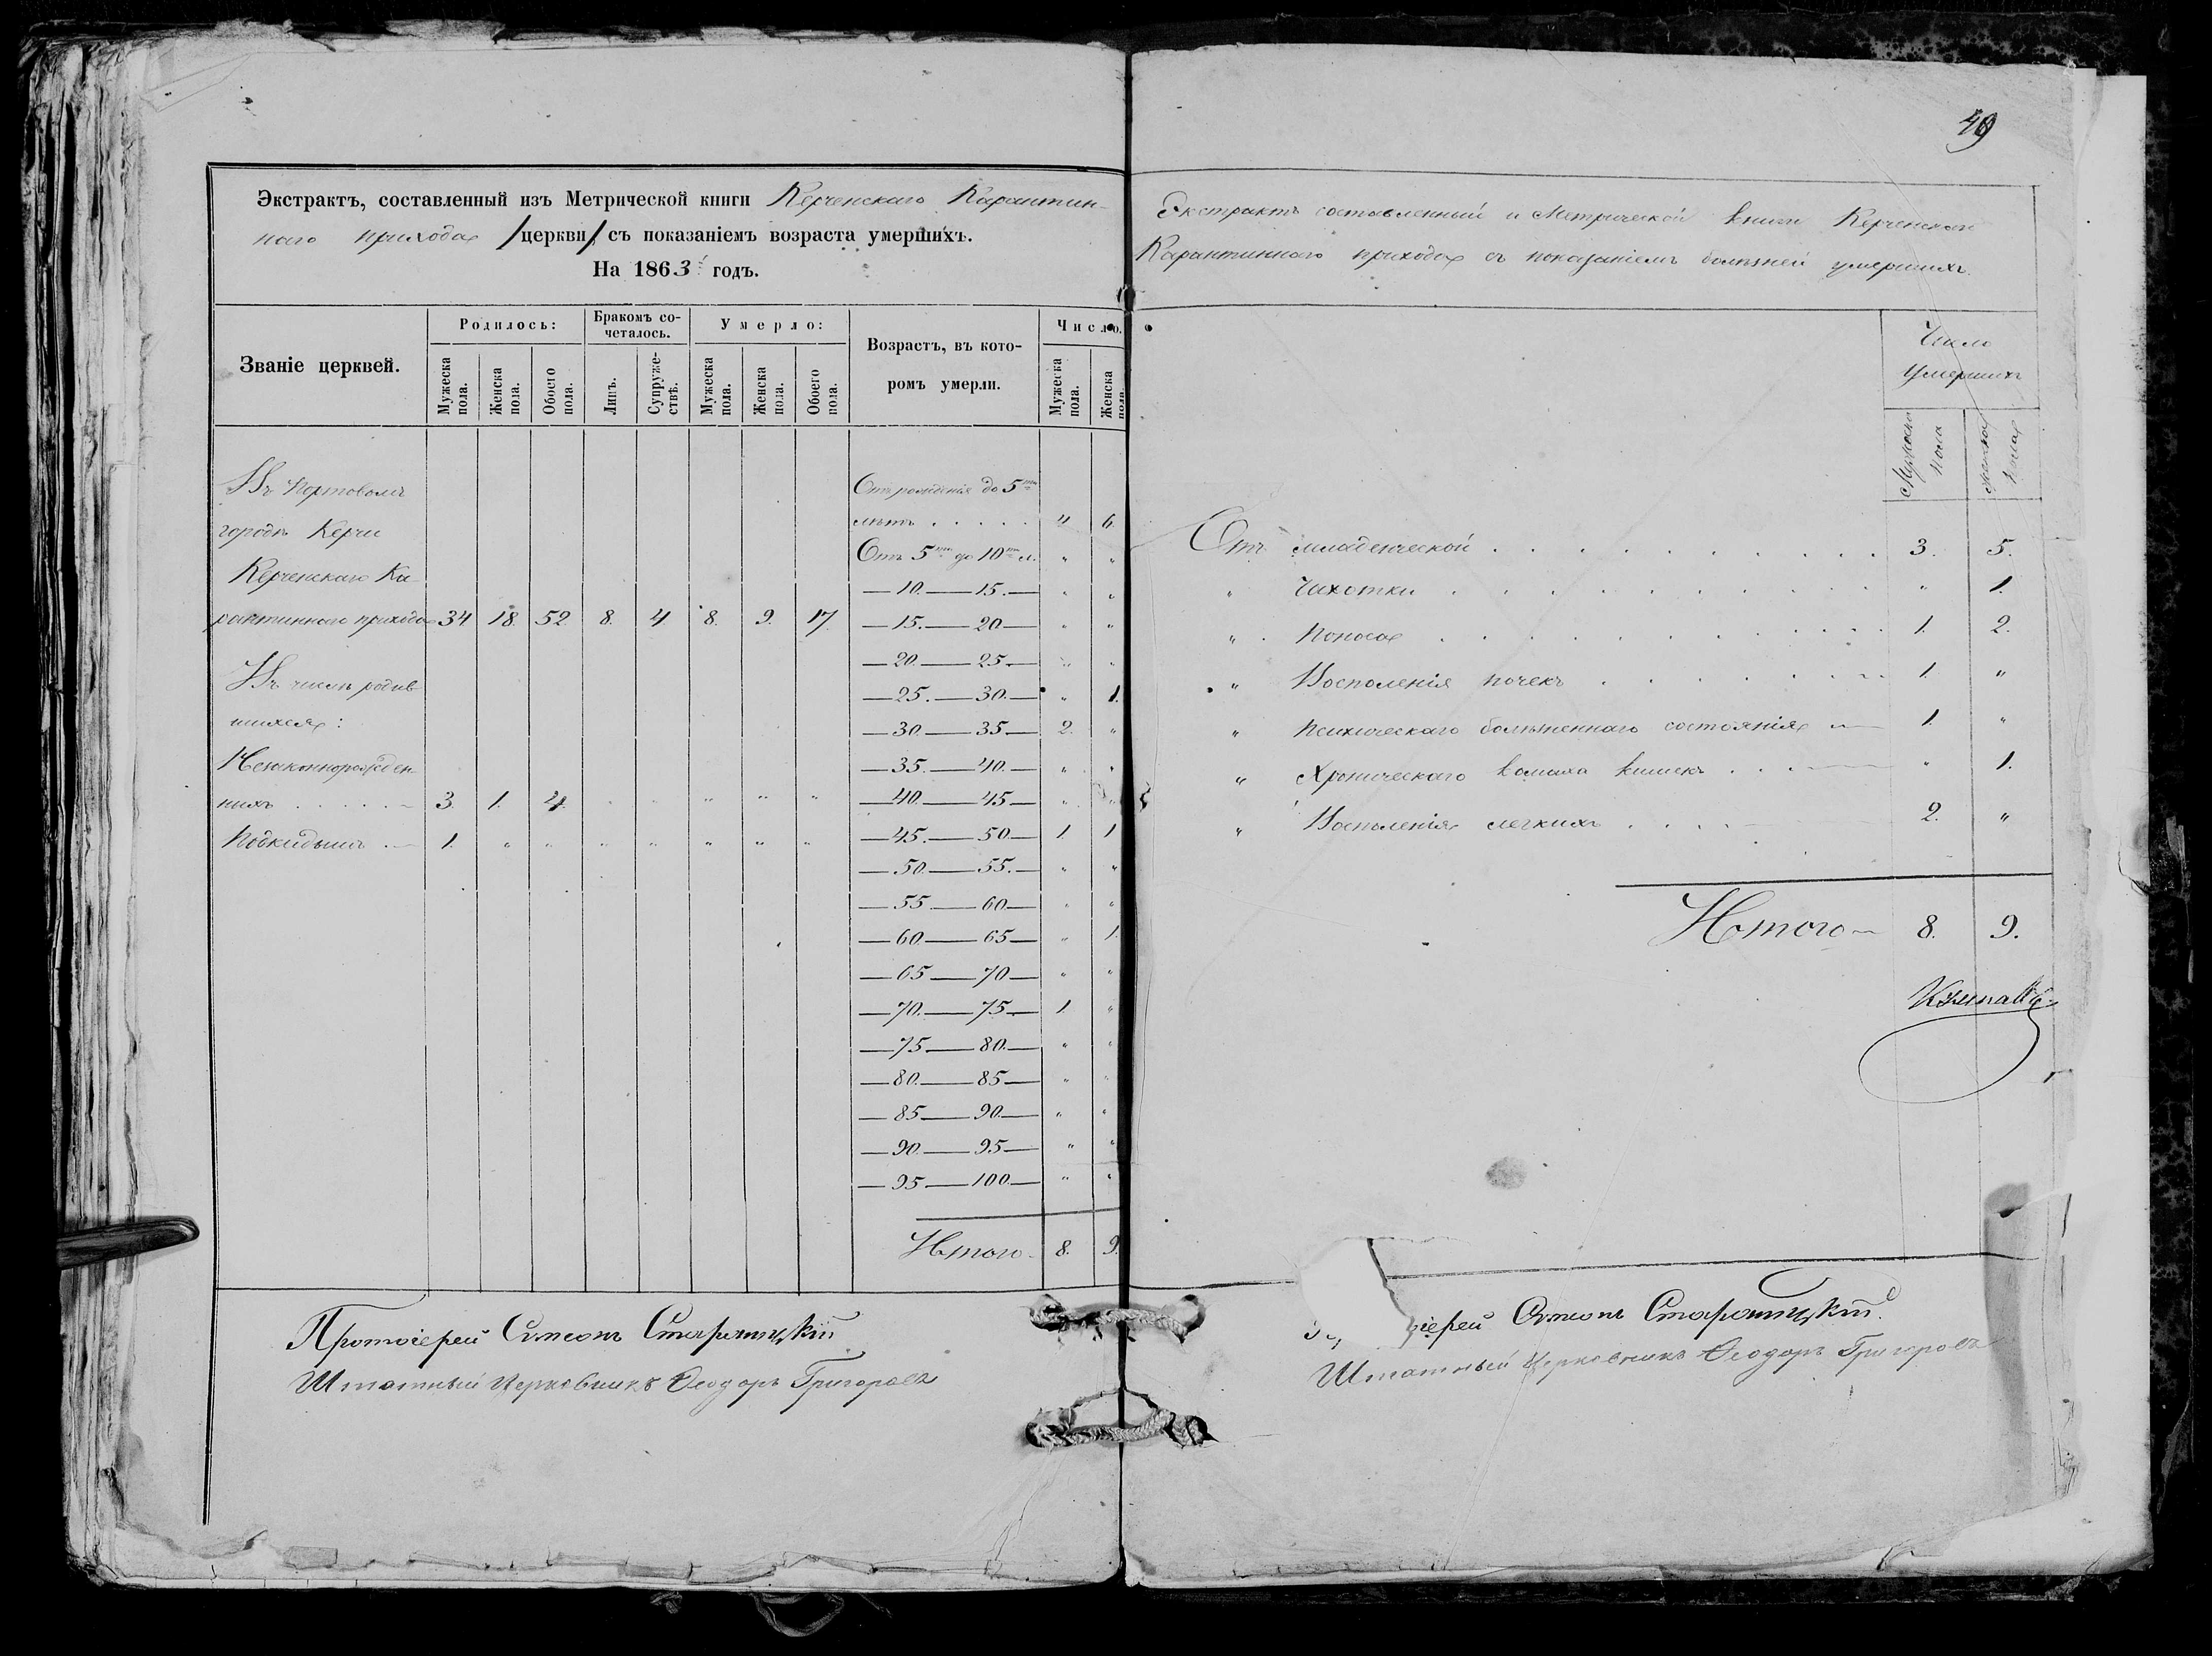 49
Экстрактъ, составленный изъ Метрической книги Керченскаго Карантин-
наго прихода /церкви/ съ показаніемъ возраста умершихъ.
На 1863 годъ.
Званіе церквей.
Родилось:
Бракомъ со-
четалось.
Умерло:
Возрастъ, въ кото-
ромъ умерли.
Число.
Мужеска пола.
Женска пола.
Обоего пола.
Лицъ.
Супруже-
ствъ.
Мужеска пола.
Женска пола.
Обоего пола.
Мужеска пола.
Женска пола.
Въ портовомъ
городѣ Керчи
Керченскаго Ка
рантиннаго прихода 34 18. 52. 8. 4 8. 9. 17.
Въ числѣ родив
шихся:
Незаконнорожден
ныхъ . . . . . 3. 1. 4. " " " " "
Подкидышъ . 1. " " " " " " "
Отъ рожденія до 5ти
лѣтъ . . . . . 4 6.
Отъ 5ти до 10ти л. " "
—10.—15.— " "
—15.—20— " "
—20.—25.— " "
—25.—30.— " 1.
—30.—35— 2. "
—35.—40.— " "
—40.—45— " "
—45.—50— 1 1
—50.—55.— " "
—55.—60— " "
—60.—65— " 1.
—65—70— " "
—70.—75— 1 "
—75—80.— " "
—80.—85— " "
—85—90.— " "
—90.—95— " "
—95—100.— " "
Итого 8. 9.
Протоіерей Симеонъ Старочицкій
Штатный Церковникъ Ѳеодоръ Григоровъ
Экстрактъ составленный и Метрической книги Керченскаго
Карантиннаго прихода съ показаніемъ болѣзней умершихъ.
Число
Умершихъ
Мужеска пола
Женска пола
Отъ младенческой . . . . . . . . . . 3. 5.
" Чахотки . . . . . . . . . . " 1.
" Поноса . . . . . . . . . . 1. 2.
" Восполенія почекъ . . . . . . . 1. "
" Психическаго болѣзненнаго состоянія 1. "
" Хроническаго кишекъ . . . " 1.
" Воспаленія легкихъ . . . . 2. "
Итого 8. 9.
іерей Симеонъ Старочицкій.
Штатный Церковникъ Ѳеодоръ Григоровъ